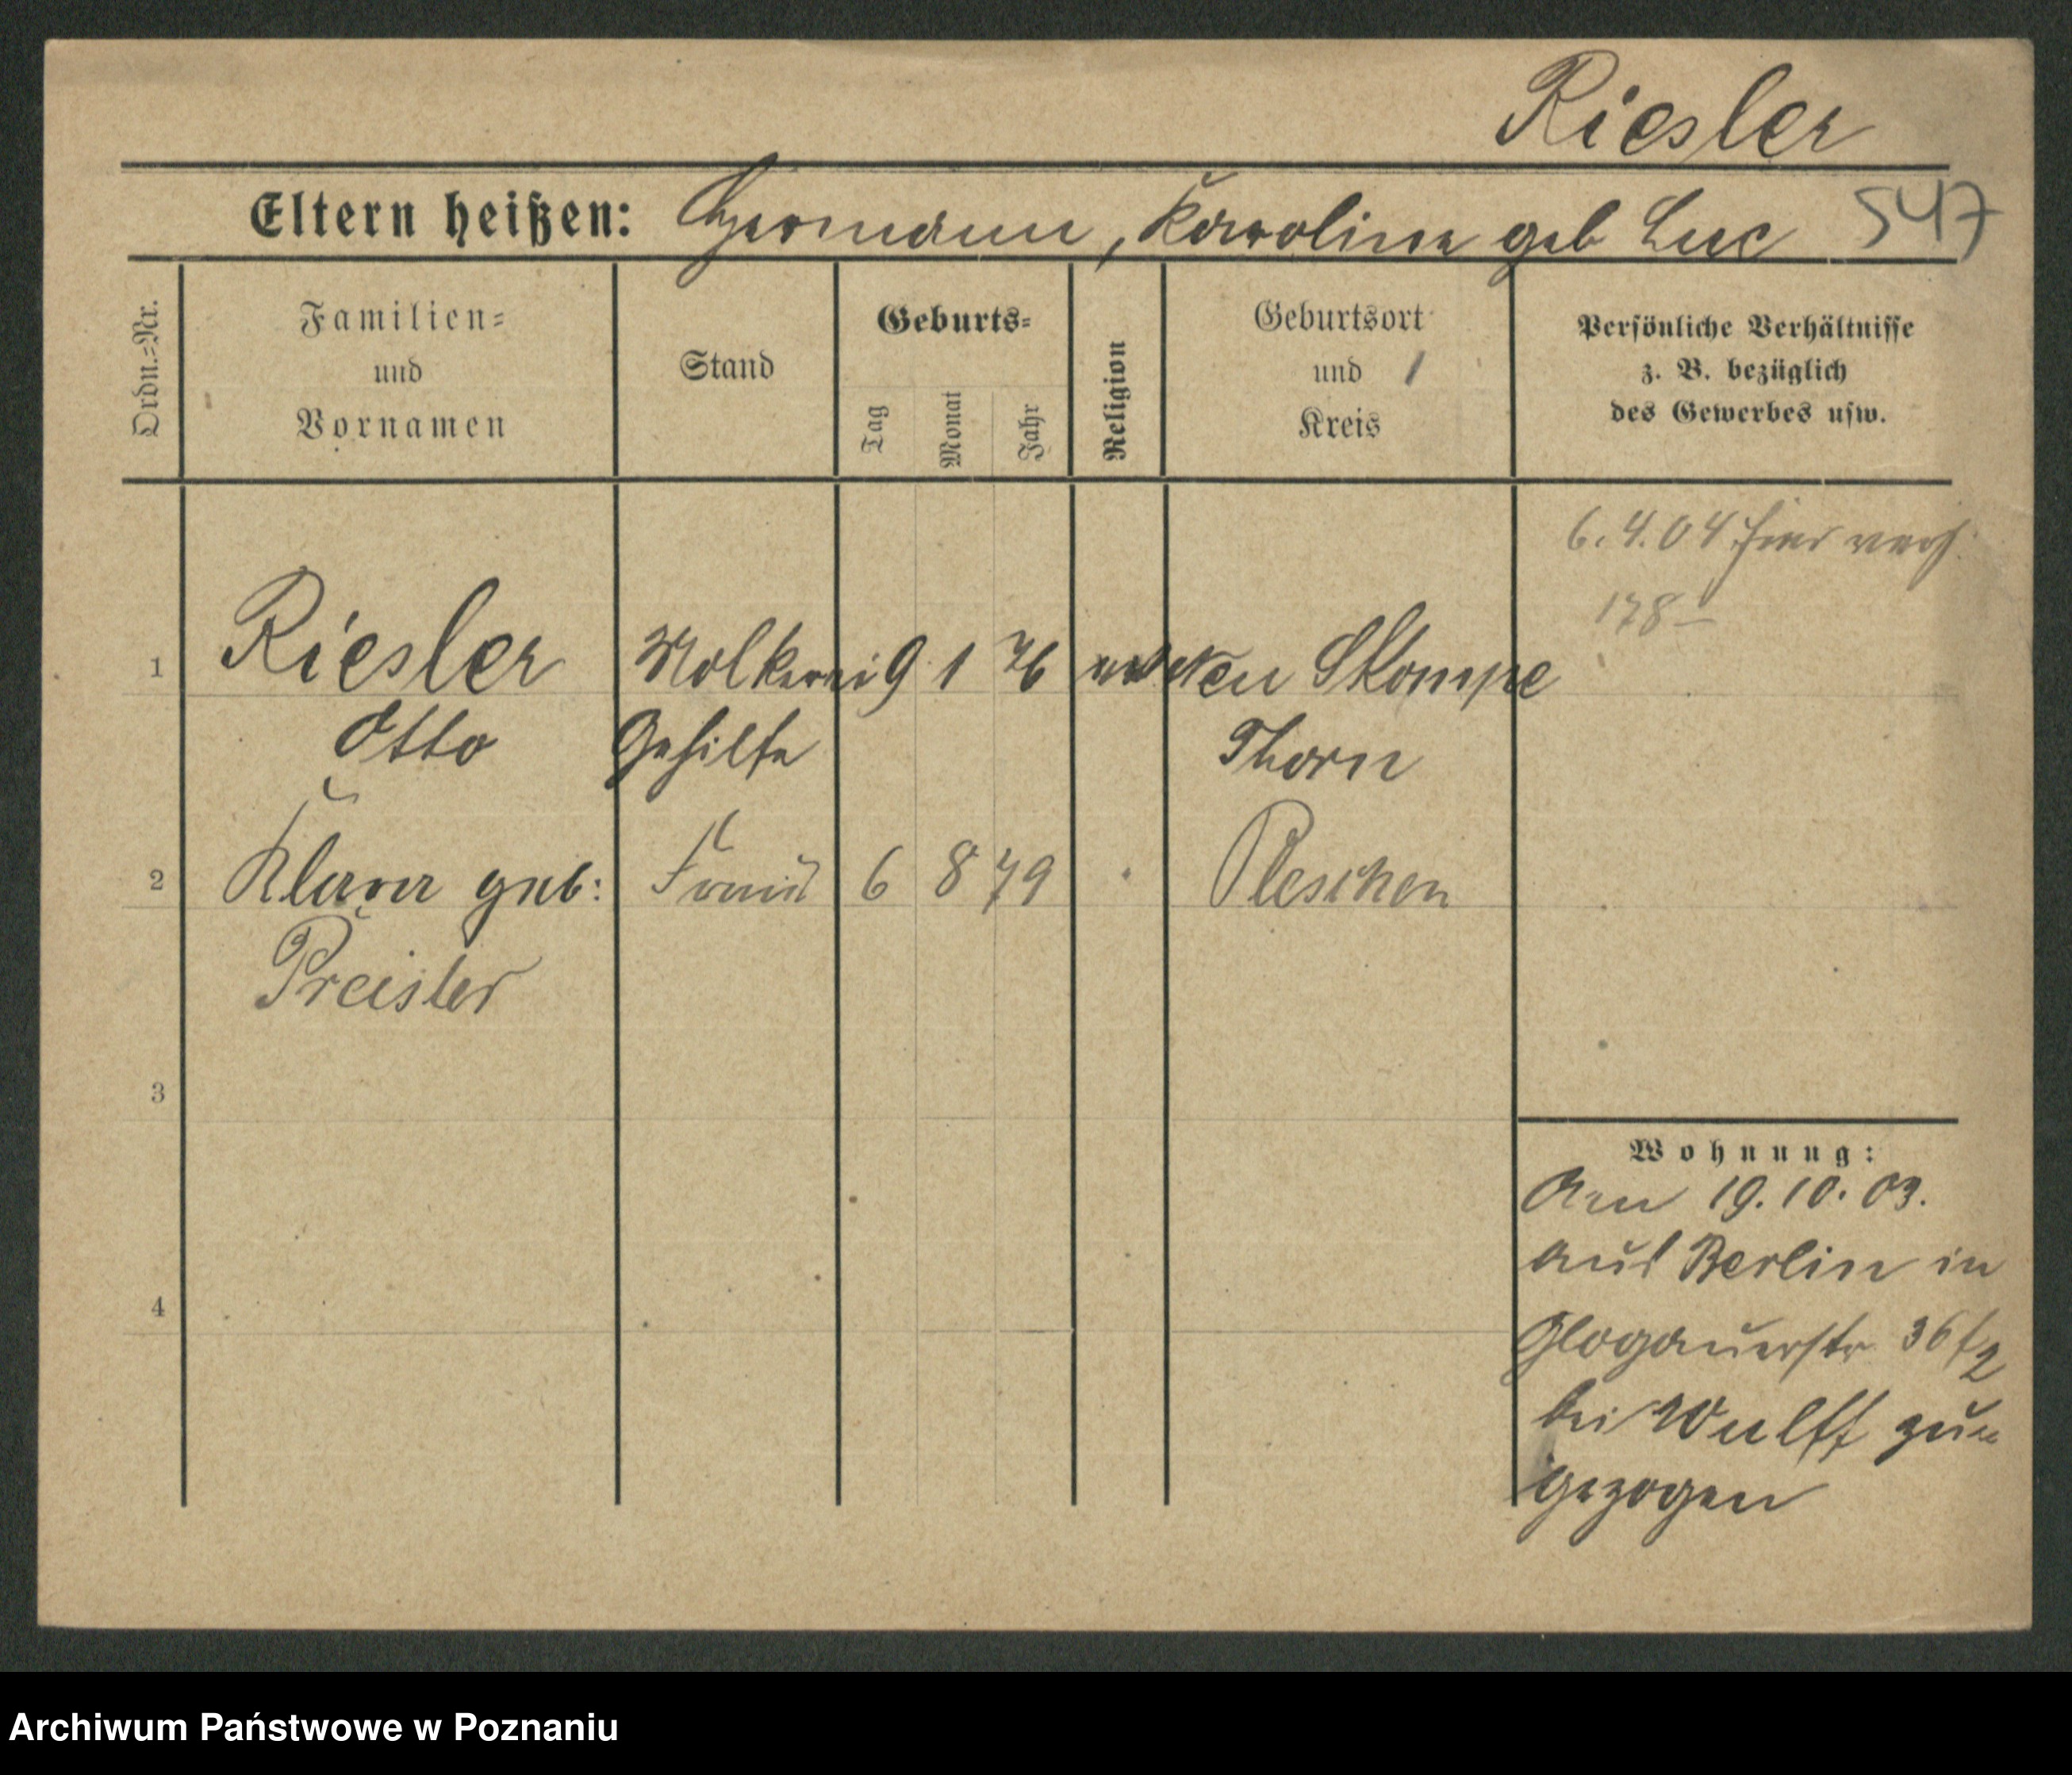 Riesler
Eltern heißen: Hermann, Karoline geb Luc 547
Ordn.-Nr.
Familien-
und
Vornamen
Stand
Geburts-
Tag
Monat
Jahr
Religion
Geburtsort
und
Kreis
Persönliche Verhältnisse
z. B. bezüglich
des Gewerbes usw.
6. 4. 04 hier verh.
178
1 Riesler Molkerei 9 1 76 Neu Skompe
Otto Gehilfe Thorn
2 Klara geb: Frau 6 8 79 Pleschen
Preisler
3
Wohnung:
Am 19. 10. 03.
aus Berlin in
4
Glogauerstr 36/2
bei Wulff zu=
gezogen
Archiwum Państwowe w Poznaniu